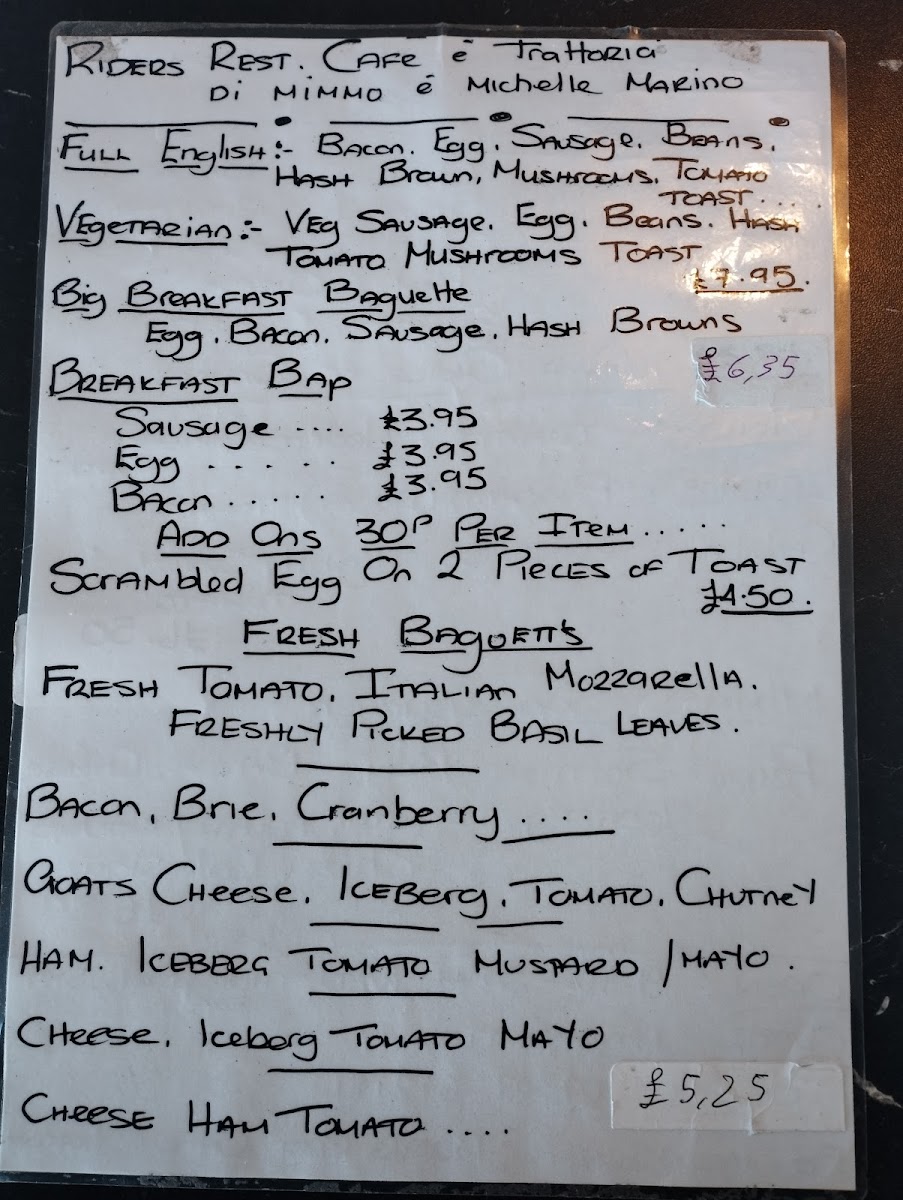 RIDERS REST. CAFE è TRATTORIA
DI MIMMO é MICHELLE MARINO
FULL ENGLISH:- BACON. EGG. SAUSAGE. BEANS.
HASH BROWN, MUSHROOMS. TOMATO
TOAST....
VEGETARIAN:- VEG SAUSAGE. EGG. BEANS. HASH
TOMATO MUSHROOMS TOAST
£7.95.
BIG BREAKFAST BAGUETTE
EGG. BACON. SAUSAGE. HASH BROWNS
£6,35
BREAKFAST BAP
SAUSAGE .... £3.95
EGG ...... £3.95
BACON ...... £3.95
ADD ONS 30P PER ITEM.....
SCRAMBLED EGG ON 2 PIECES OF TOAST
£4.50.
FRESH BAGUETT'S
FRESH TOMATO. ITALIAN MOZZARELLA.
FRESHLY PICKED BASIL LEAVES.
BACON, BRIE. CRANBERRY....
GOATS CHEESE. ICEBERG. TOMATO. CHUTNEY
HAM. ICEBERG TOMATO MUSTARD / MAYO.
CHEESE. ICEBERG TOMATO MAYO
£5,25
CHEESE HAM TOMATO ....